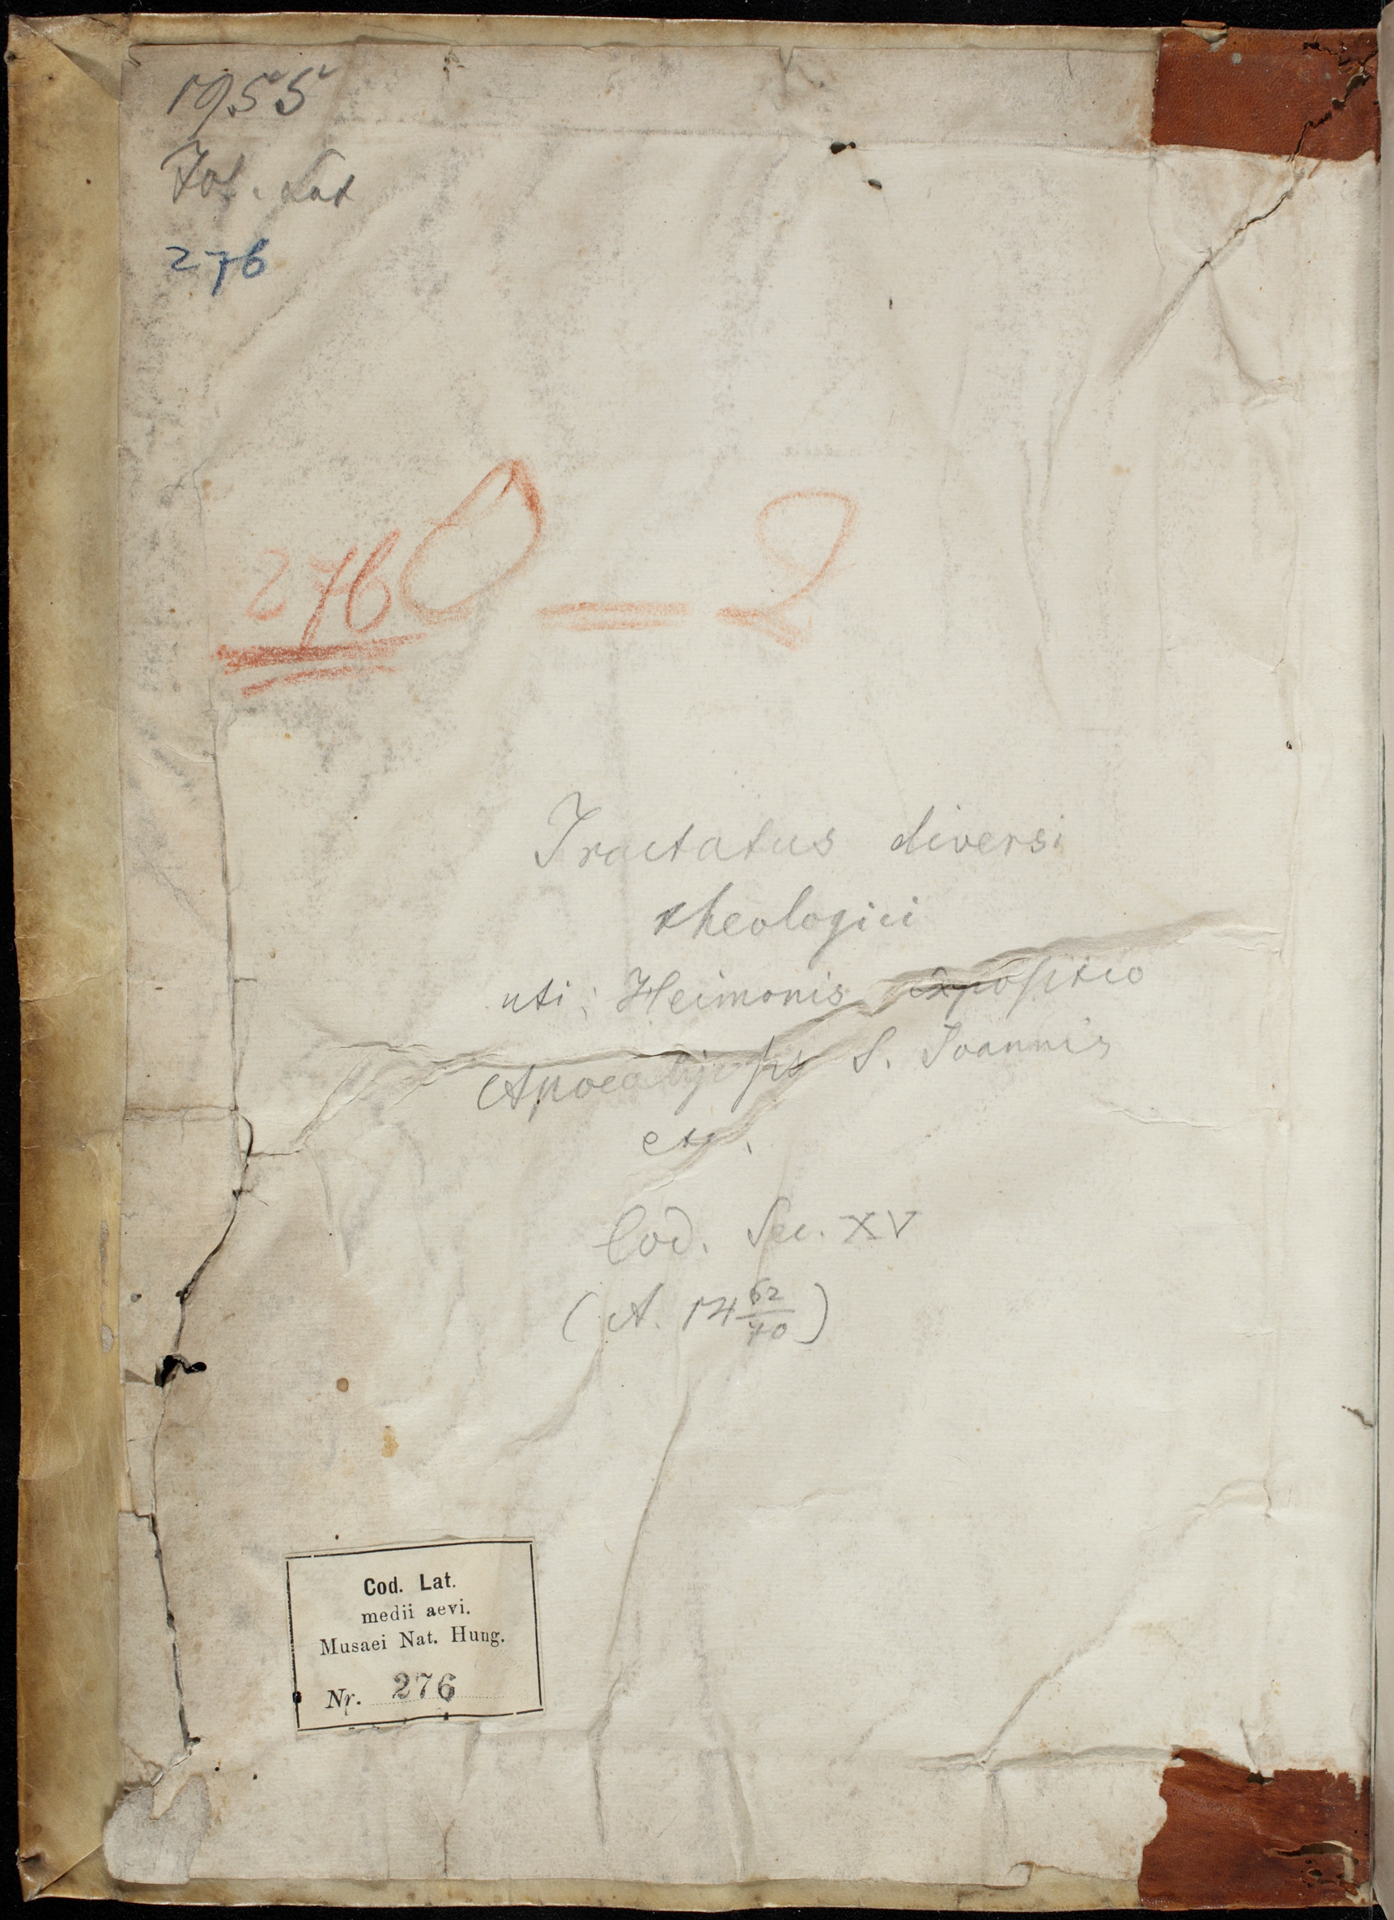 1955
Fol. Lat
276
276 O — 2
Tractatus diversi
theologici
uti: Heimonis expositio
Apocalypsis S. Joannis
etc.
Cod. Sec. XV
(A. 14 62/70)
Cod. Lat.
medii aevi.
Musaei Nat. Hung.
Nr. 276